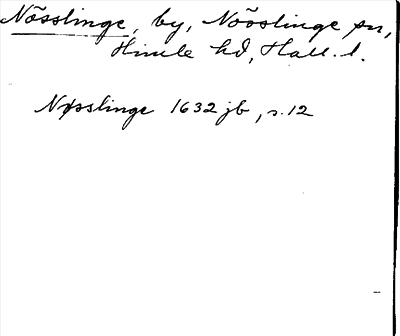 Nösslinge, by, Nösslinge sn,
Himle hd, Hall. l.
Nøsslinge 1632 jb, s. 12